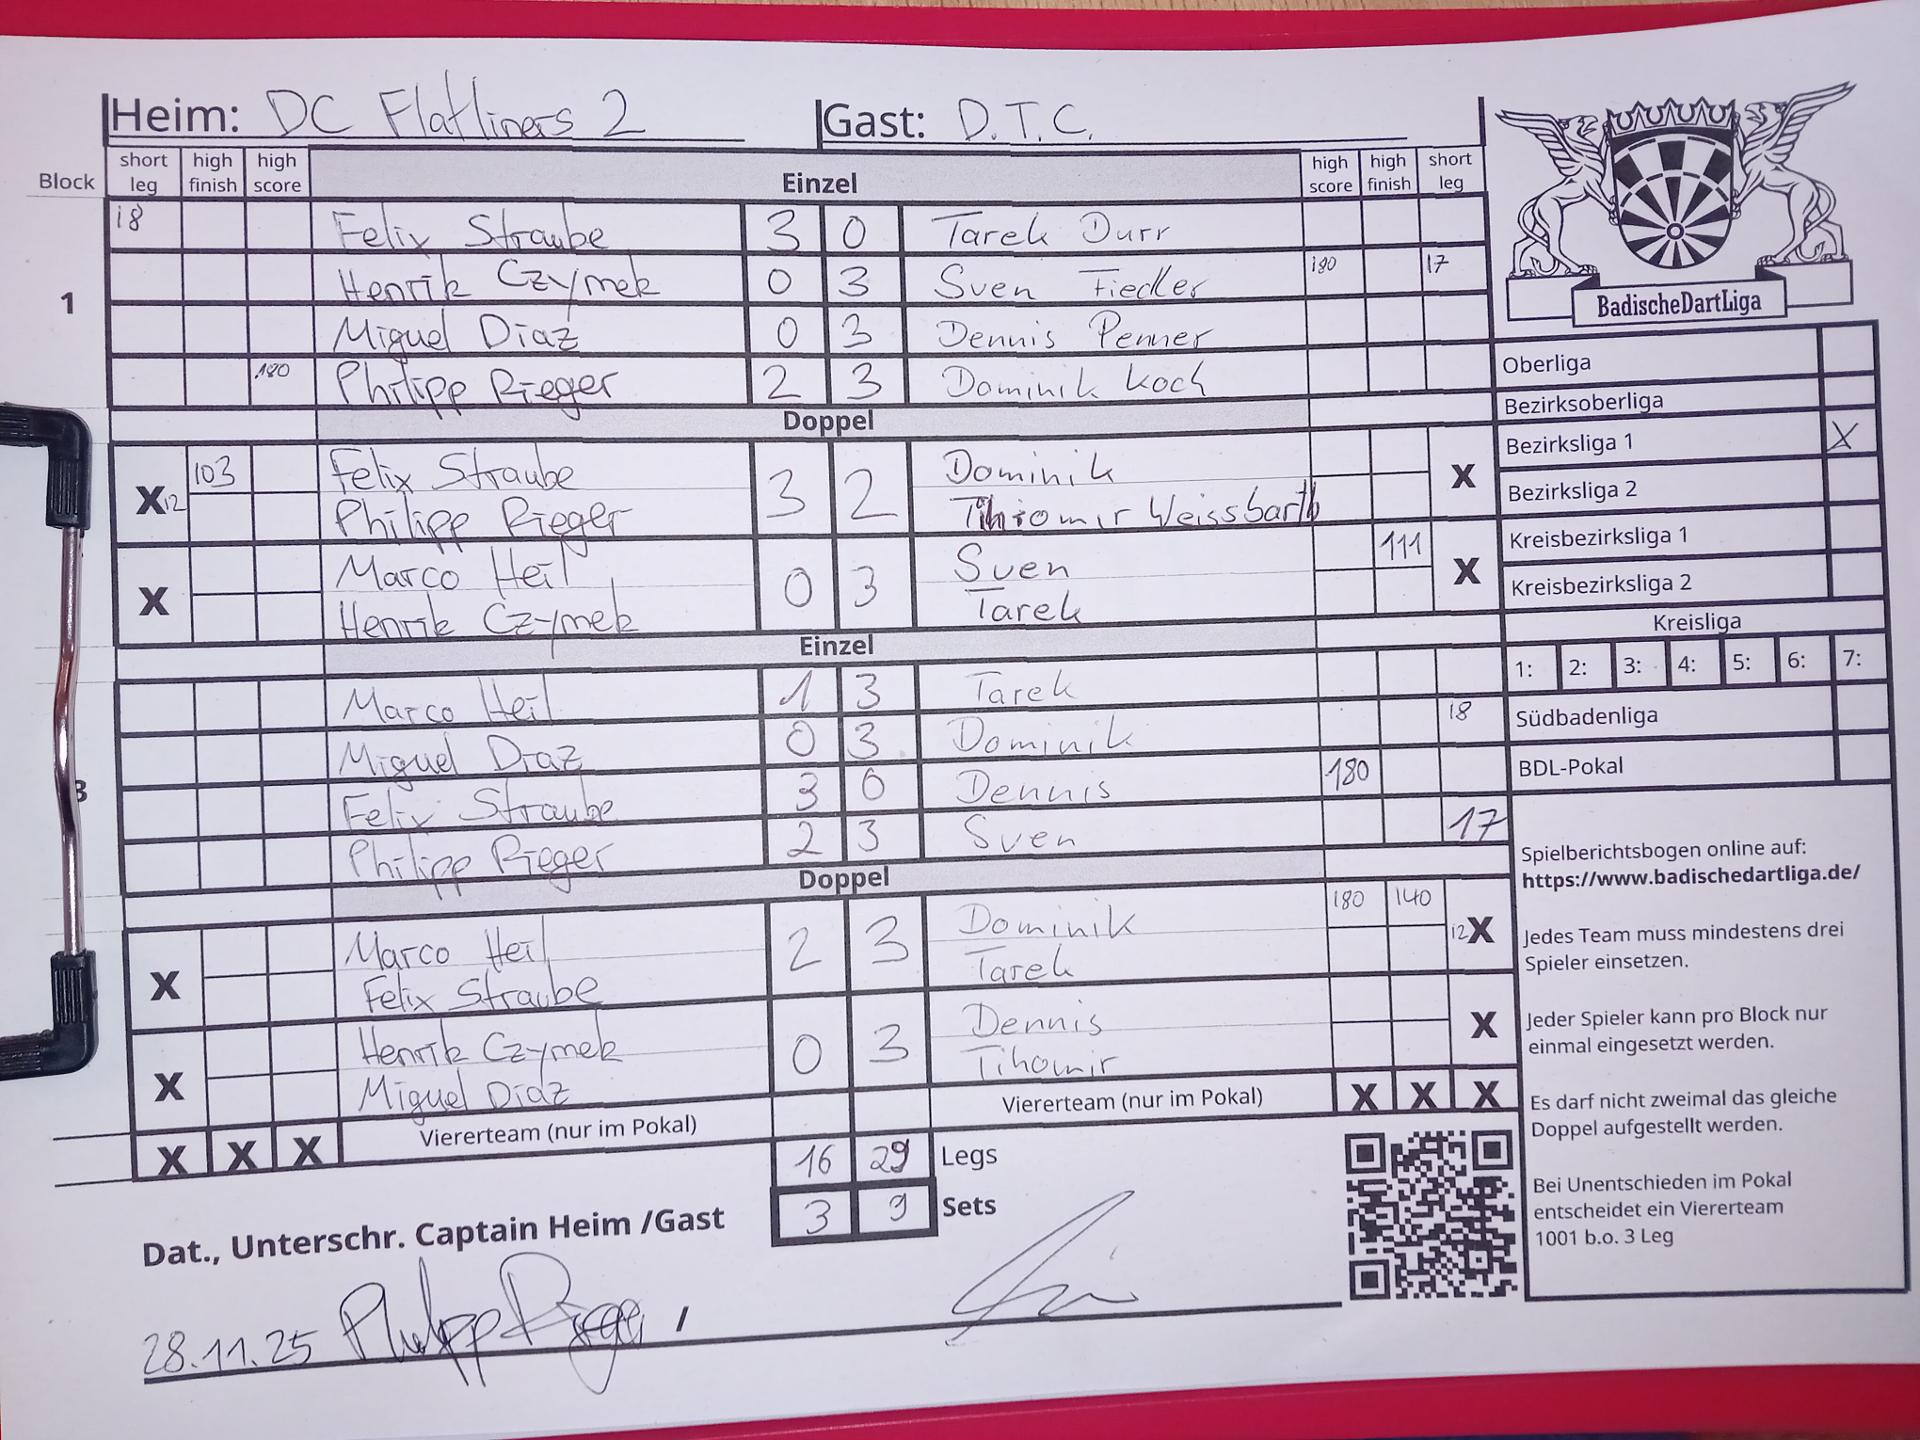 Heim: DC Flatliners 2 Gast: D.T.C.
Block short leg high finish high score Einzel high score high finish short leg
18 Felix Straube 3 0 Tarek Durr
Henrik Czymek 0 3 Sven Fiedler 180 17
1
Miguel Diaz 0 3 Dennis Penner
180 Philipp Rieger 2 3 Dominik Koch
Doppel
X 12 103 Felix Straube 3 2 Dominik X
Philipp Rieger Tihiomir Weissbarth
X Marco Heil 0 3 Sven 111 X
Henrik Czymek Tarek
Einzel
Marco Heil 1 3 Tarek
Miguel Diaz 0 3 Dominik 18
3
Felix Straube 3 0 Dennis 180
Philipp Rieger 2 3 Sven 17
Doppel
X Marco Heil 2 3 Dominik 180 140 12 X
Felix Straube Tarek
X Henrik Czymek 0 3 Dennis X
Miguel Diaz Tihomir
X X X Viererteam (nur im Pokal) Viererteam (nur im Pokal) X X X
16 29 Legs
3 9 Sets
Dat., Unterschr. Captain Heim /Gast
28.11.25 Philipp Rieger /
BadischeDartLiga
Oberliga
Bezirksoberliga
Bezirksliga 1 X
Bezirksliga 2
Kreisbezirksliga 1
Kreisbezirksliga 2
Kreisliga
1: 2: 3: 4: 5: 6: 7:
Südbadenliga
BDL-Pokal
Spielberichtsbogen online auf:
https://www.badischedartliga.de/
Jedes Team muss mindestens drei
Spieler einsetzen.
Jeder Spieler kann pro Block nur
einmal eingesetzt werden.
Es darf nicht zweimal das gleiche
Doppel aufgestellt werden.
Bei Unentschieden im Pokal
entscheidet ein Viererteam
1001 b.o. 3 Leg